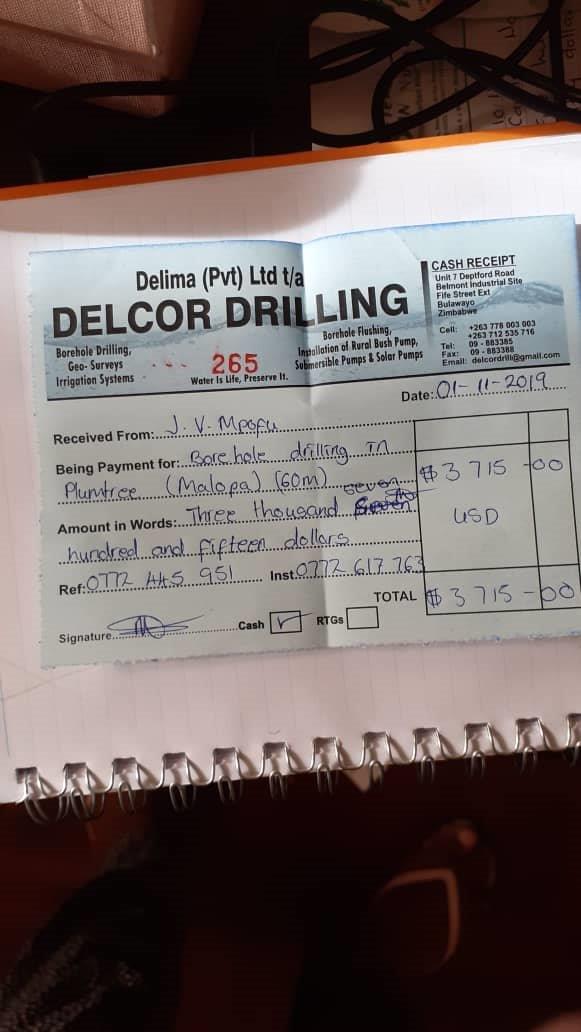 Delima (Pvt) Ltd t/a
DELCOR DRILLING
Borehole Drilling,
Geo- Surveys
Irrigation Systems
265
Water Is Life, Preserve It.
Borehole Flushing,
Installation of Rural Bush Pump,
Submersible Pumps & Solar Pumps
CASH RECEIPT
Unit 7 Deptford Road
Belmont Industrial Site
Fife Street Ext
Bulawayo
Zimbabwe
Cell: +263 778 003 003
+263 712 535 716
Tel: 09 - 883385
Fax: 09 - 883388
Email: delcordrill@gmail.com
Date: 01-11-2019
Received From: J. V. Mpofu
Being Payment for: Borehole drilling in
Plumtree (Malopa) (60m)
$3 715 -00
Amount in Words: Three thousand seven
USD
hundred and fifteen dollars
Ref: 0772 445 951 Inst. 0772 617 763
TOTAL $3 715 - 00
Signature Cash ✓ RTGs